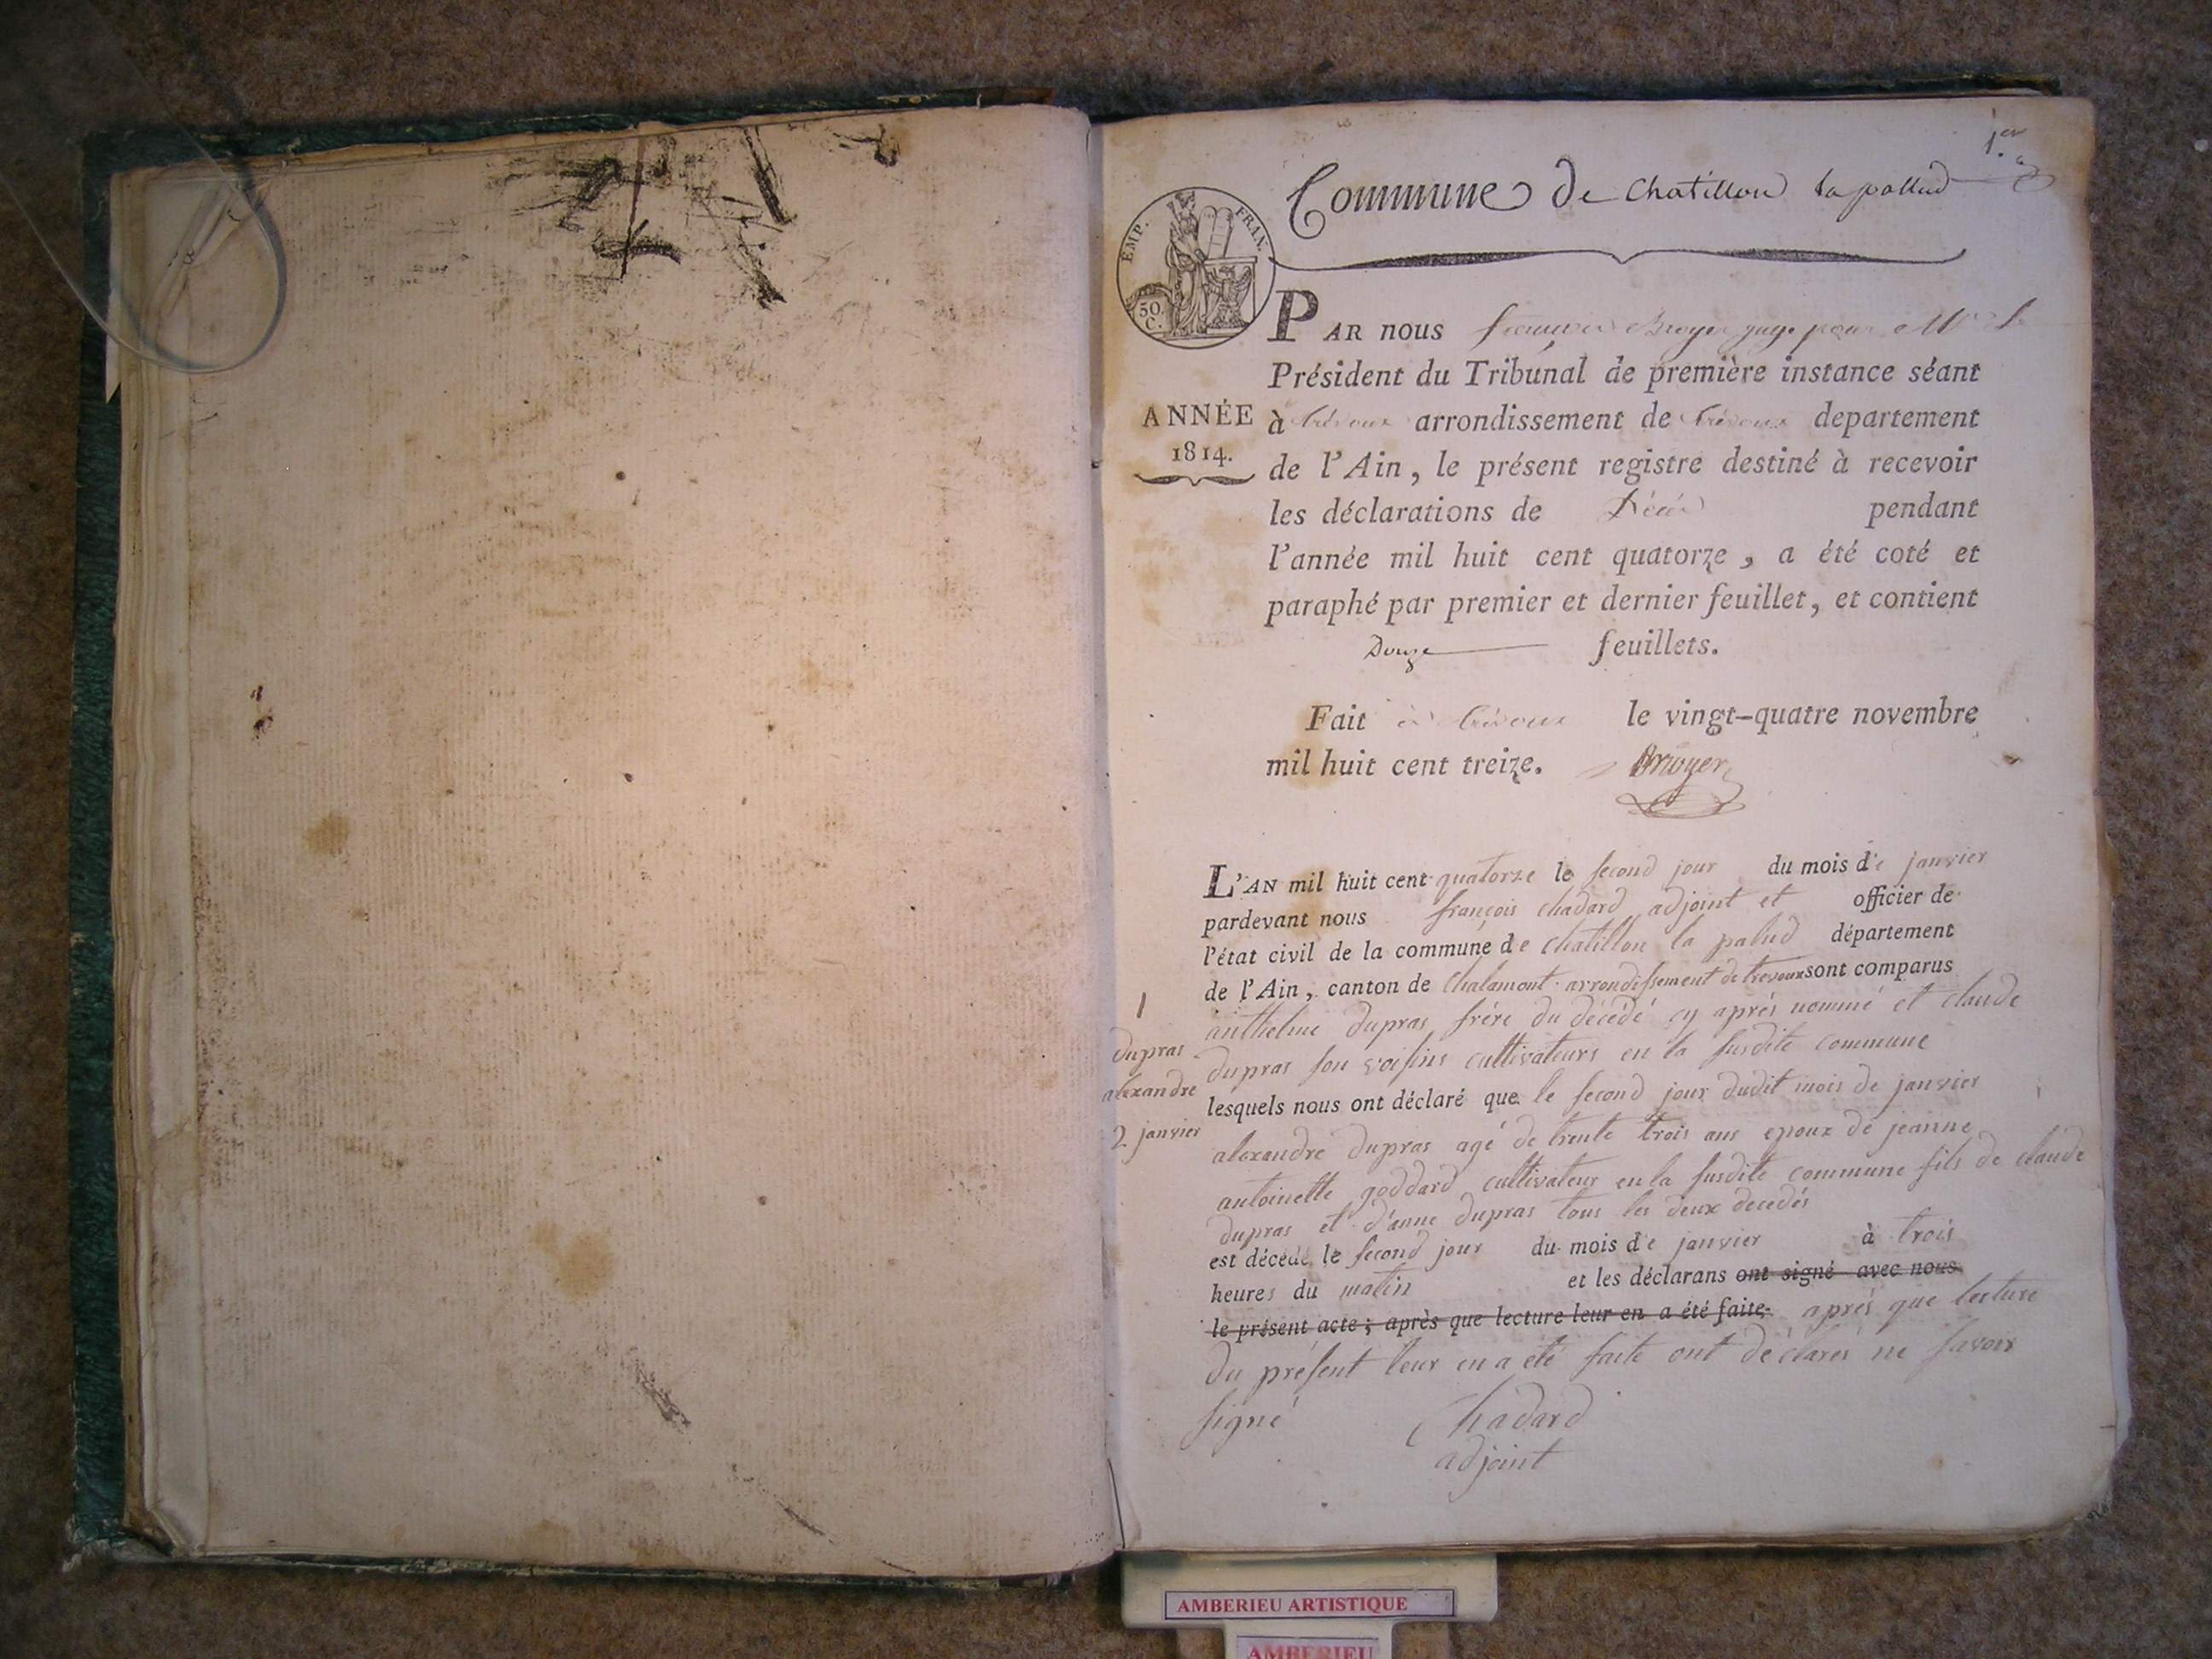 1.er
Commune de Chatillon la pallud
EMP. FRAN.
50 C.
PAR nous Broyer juge pour Mr le
Président du Tribunal de première instance séant
ANNÉE
1814.
à trévoux arrondissement de trévoux departement
de l'Ain, le présent registre destiné à recevoir
les déclarations de Décès pendant
l'année mil huit cent quatorze, a été coté et
paraphé par premier et dernier feuillet, et contient
Douze feuillets.
Fait à trévoux le vingt-quatre novembre
mil huit cent treize. Broyer
L'AN mil huit cent quatorze le second jour du mois de janvier
pardevant nous françois chadard adjoint et officier de
l'état civil de la commune de chatillon la palud département
de l'Ain, canton de Chalamont arrondissement de trevoux sont comparus
1
dupras
alexandre
2 janvier
anthelme dupras frére du décédé cy aprés nommé et claude
dupras son voisins cultivateurs en la susdite commune
lesquels nous ont déclaré que le second jour dudit mois de janvier
alexandre dupras agé de trente trois ans epoux de jeanne
antoinette goddard cultivateur en la susdite commune fils de claude
dupras et d'anne dupras tous les deux decedés
est décédé le second jour du mois de janvier à trois
heures du matin et les déclarans ont signé avec nous
le présent acte; après que lecture leur en a été faite. aprés que lecture
du présent leur en a eté faite ont déclarés ne savoir
signé Chadard
adjoint
AMBERIEU ARTISTIQUE
AMBERIEU